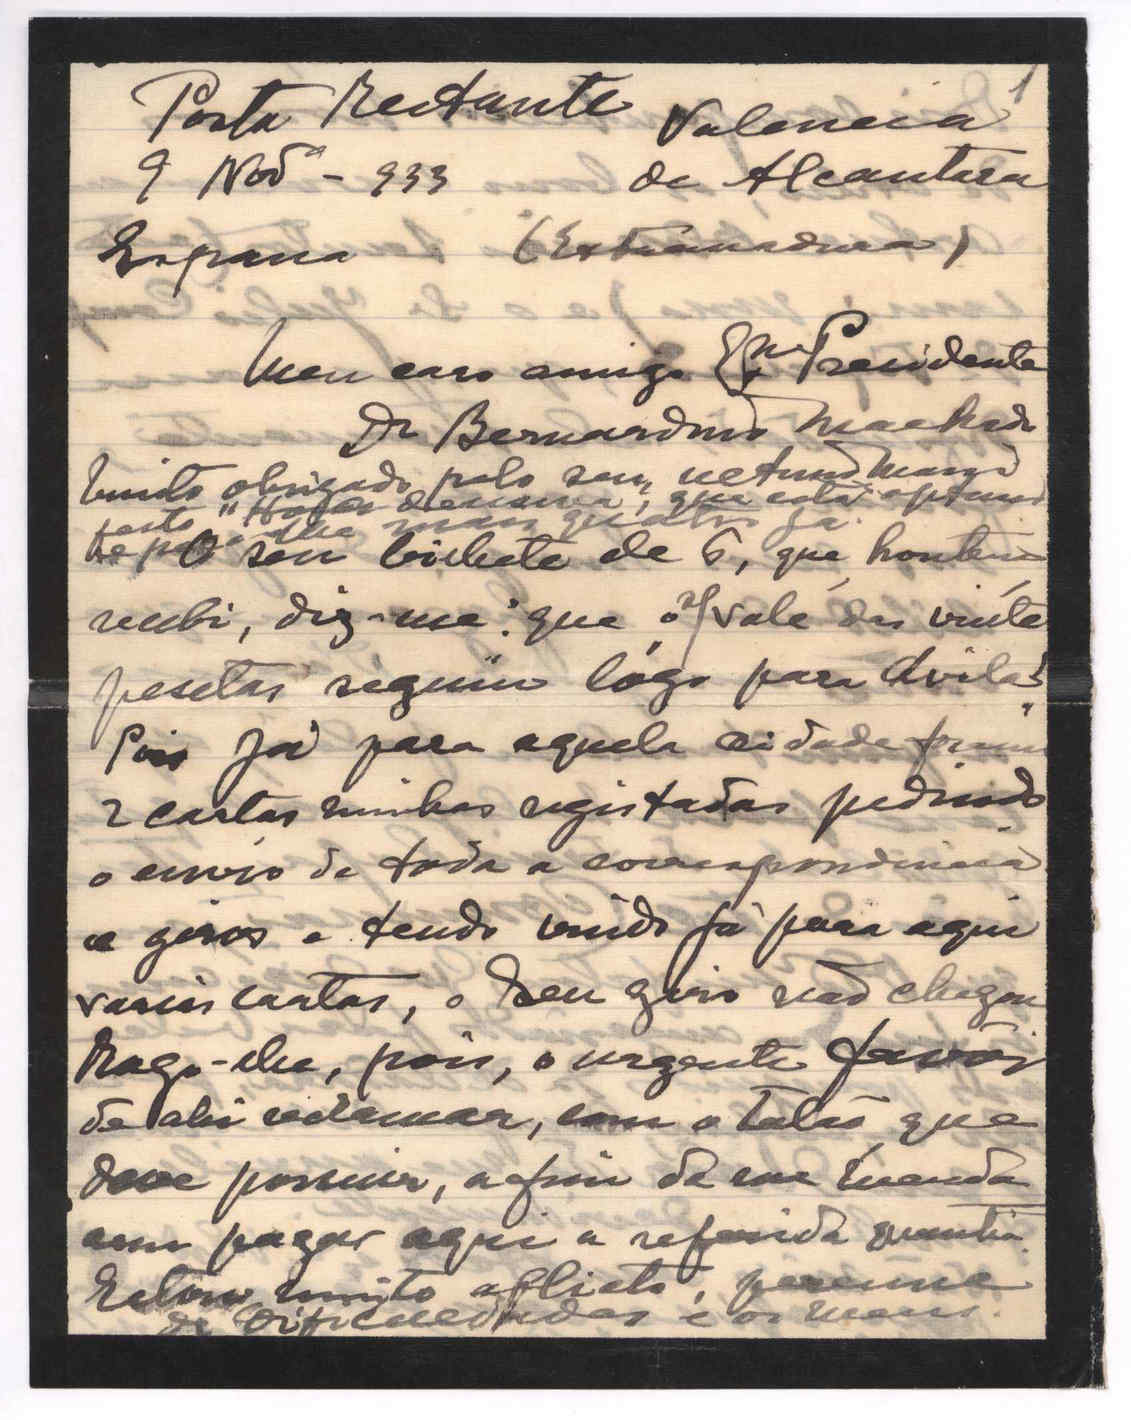 1
Posta Restante Valencia
9 Novº - 933 de Alcantara
España (Extramadura)
Meu caro amigo Exmo Presidente
Dr Bernardino Machado
Muito obrigado pelo seu
O seu bilhete de 6, que hontem
recebi, diz-me: que "o vale das vinte
pesetas seguiu lógo para Avila"
Pois já para aquela cidade foram
2 cartas minhas registadas pedindo
o envio de toda a correspondencia
e giros e tendo vindo já para aqui
varias cartas, o seu giro não chegou
Rogo-lhe, pois, o urgente favôr
de ahi reclamar, com o talão que
deve possuir, a fim de me manda
rem pagar aqui a referida quantia.
Estou muito aflicto, porque
de dificuldades e os meus.